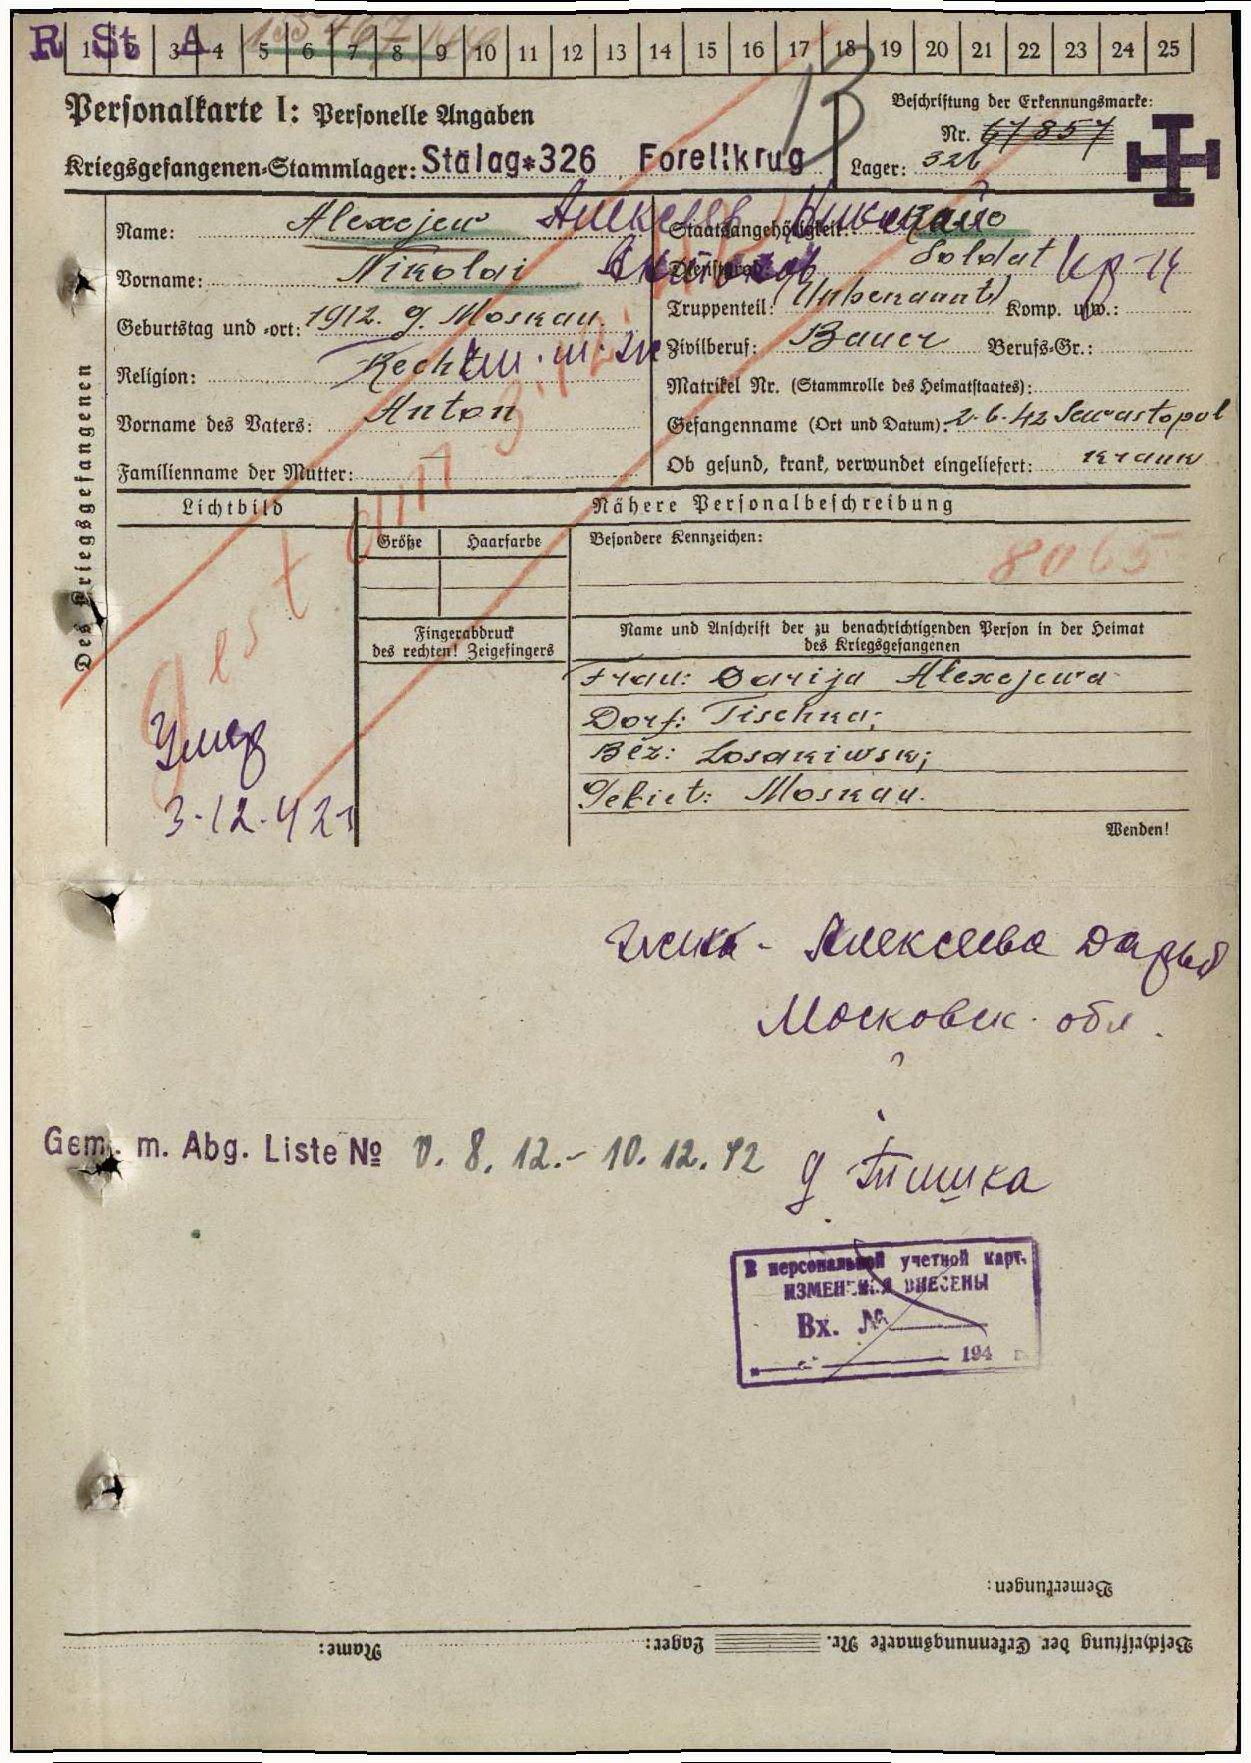 R St A
1 2 3 4 5 6 7 8 9 10 11 12 13 14 15 16 17 18 19 20 21 22 23 24 25
Personalkarte I: Personelle Angaben
Beschriftung der Erkennungsmarke:
Nr. 67857
Kriegsgefangenen-Stammlager: Stalag*326 Forellkrug
Lager: 326
Des Kriegsgefangenen
Name: Alexejew Алексеев Николай
Staatsangehörigkeit:
Vorname: Nikolai
Dienstgrad: Soldat
Truppenteil: Unbekannt Komp. usw.:
Geburtstag und -ort: 1912. g. Moskau
Zivilberuf: Bauer Berufs-Gr.:
Religion:
Matrikel Nr. (Stammrolle des Heimatstaates):
Vorname des Vaters: Anton
Gefangenname (Ort und Datum): 2.6.42 Sewastopol
Familienname der Mutter: —
Ob gesund, krank, verwundet eingeliefert: krank
Lichtbild
Nähere Personalbeschreibung
Größe Haarfarbe
Besondere Kennzeichen:
8065
Fingerabdruck
des rechten! Zeigefingers
Name und Anschrift der zu benachrichtigenden Person in der Heimat
des Kriegsgefangenen
Frau: Darija Alexejewa
Dorf: Tischka;
Bez: Losakiwsk;
Gebiet: Moskau.
Wenden!
gestorben 3.12.
Умер
3.12.42г
жена - Алексеева Дарья
Московск. обл.
Gem. m. Abg. Liste № v. 8. 12. - 10. 12. 42
д Тишка
В персональной учетной карт.
ИЗМЕНЕНИЯ ВНЕСЕНЫ
Вх. №
194 г.
Bemerkungen:
Beschriftung der Erkennungsmarke Nr. Lager: Name: